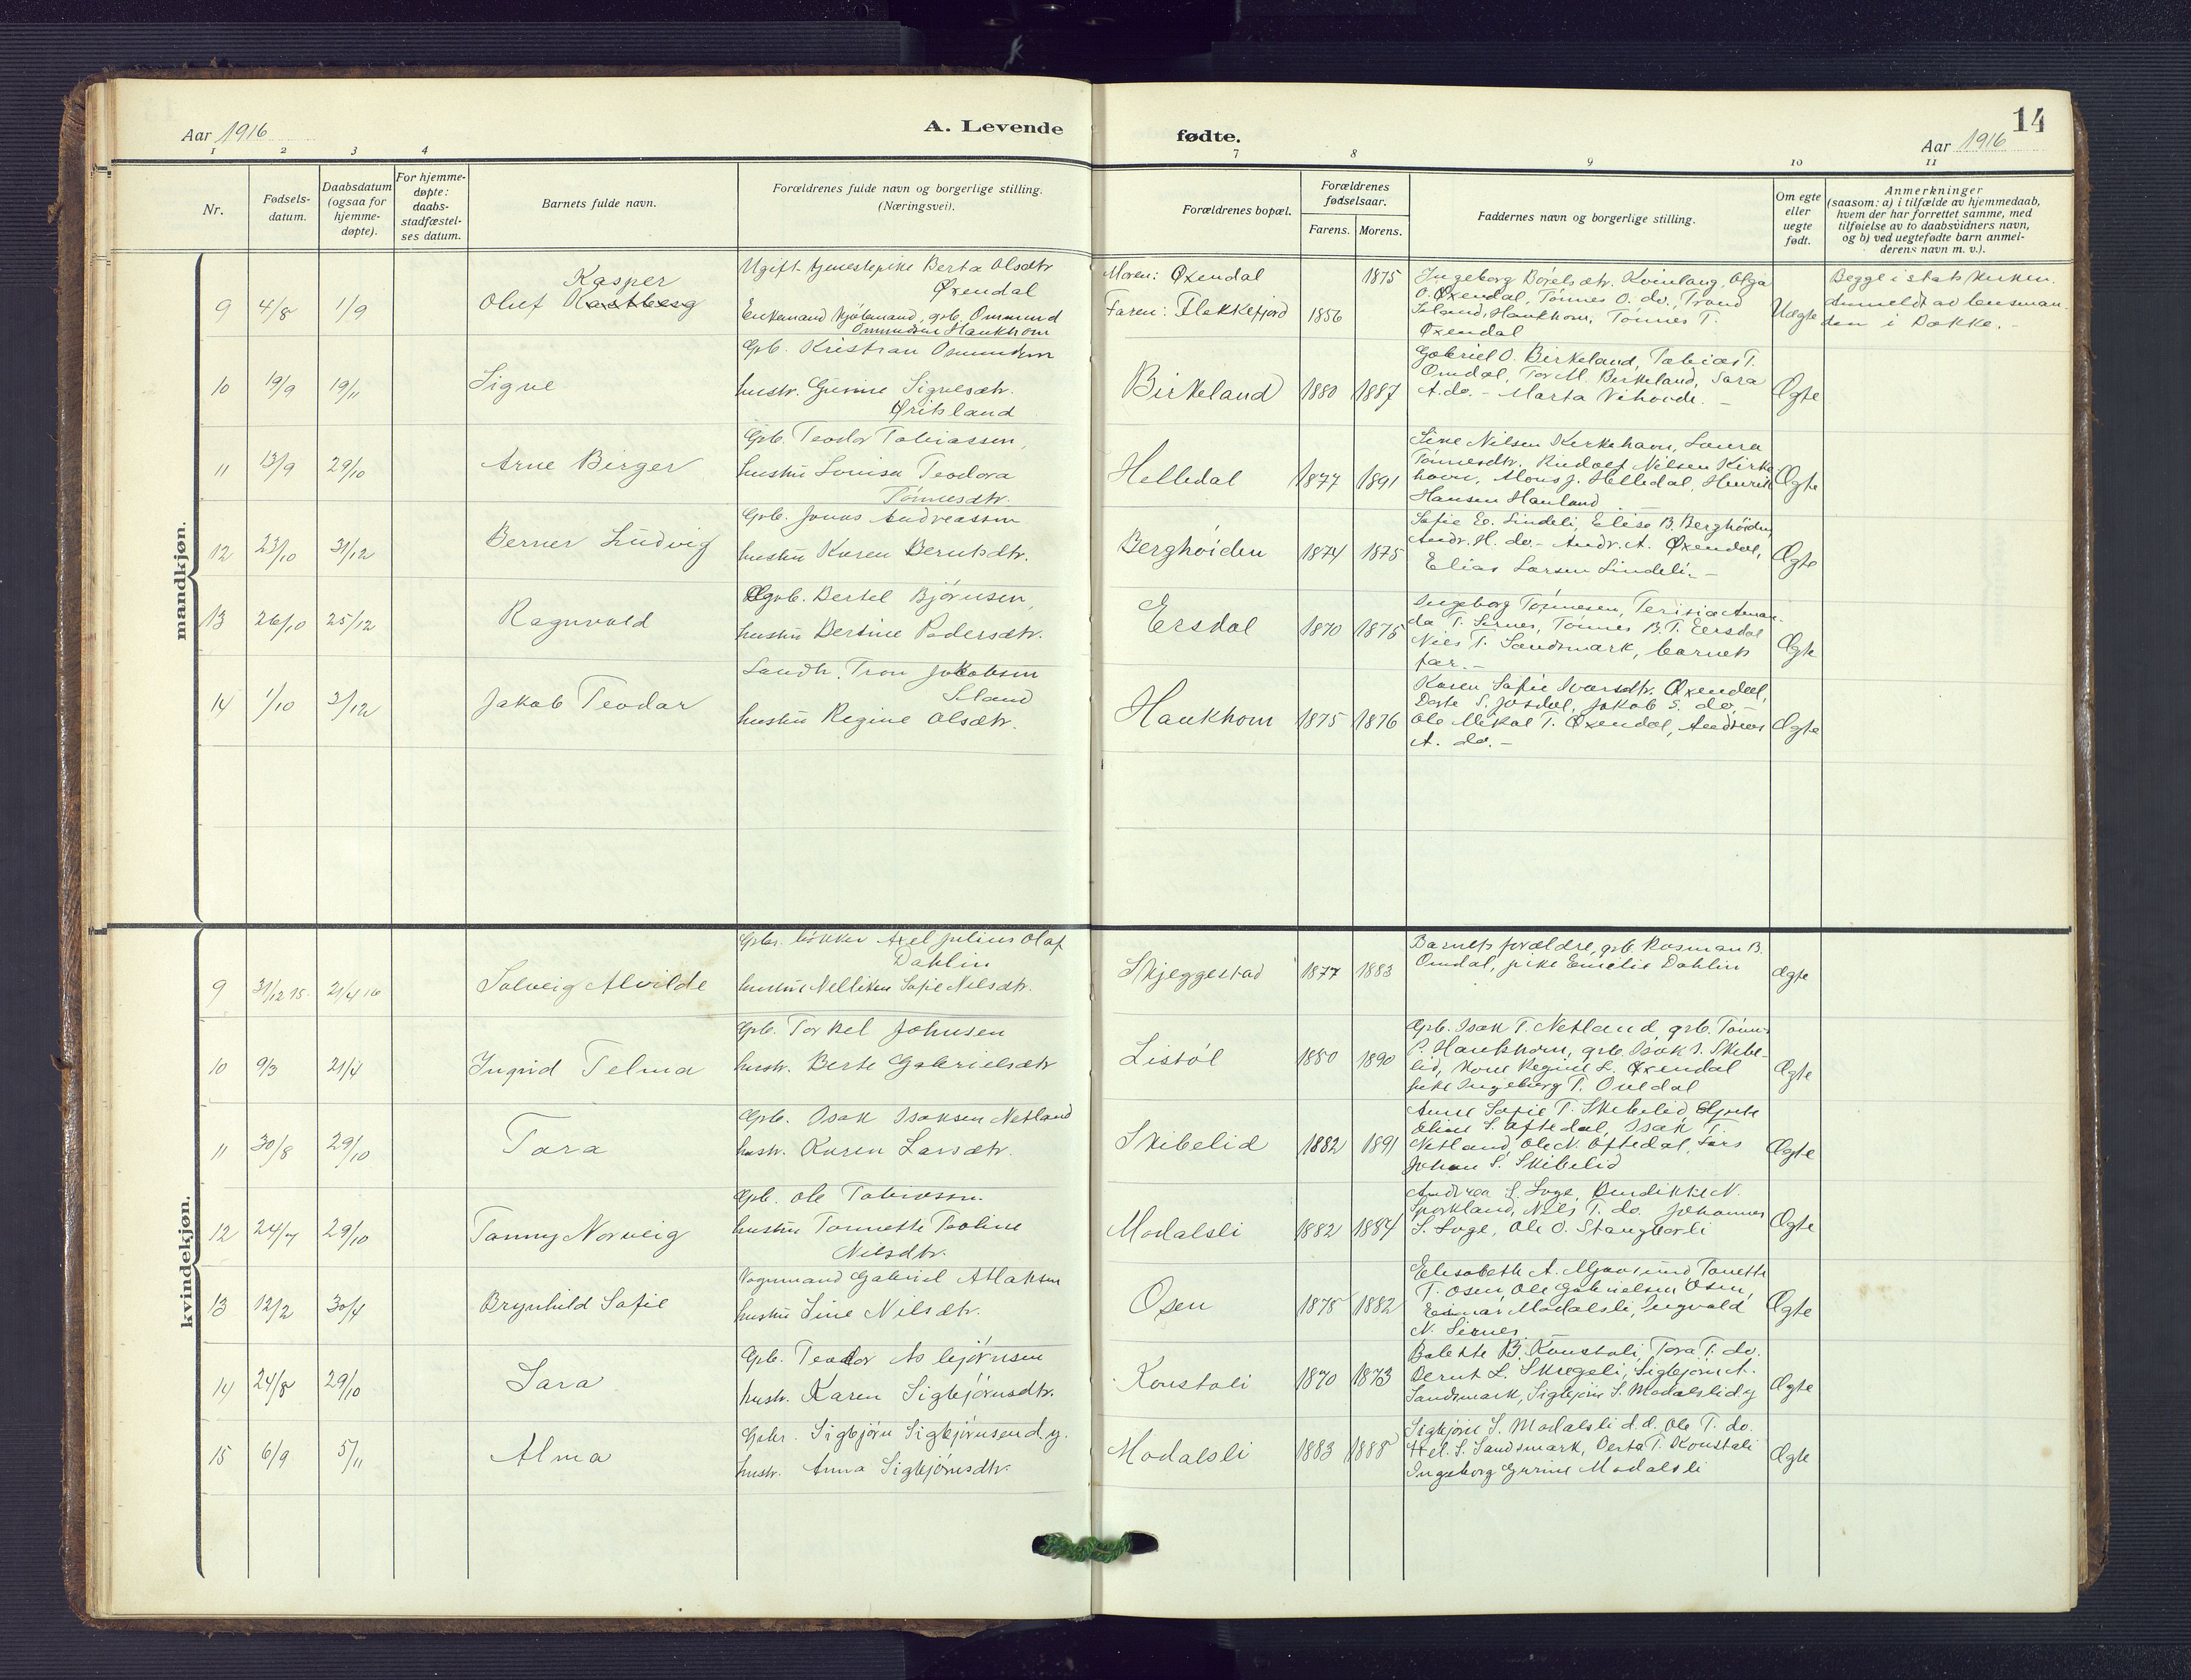 14
Aar 1916
A. Levende
fødte.
Aar 1916
1 2 3 4 7 8 9 10 11
Nr.
Fødsels-
datum.
Daabsdatum
(ogsaa for
hjemme-
døpte).
For hjemme-
døpte:
daabs-
stadfæstel-
ses datum.
Barnets fulde navn.
Forældrenes fulde navn og borgerlige stilling.
(Næringsvei).
Forældrenes bopæl.
Forældrenes
fødselsaar.
Farens. Morens.
Faddernes navn og borgerlige stilling.
Om egte
eller
uegte
født.
Anmerkninger
(saasom: a) i tilfælde av hjemmedaab,
hvem der har forrettet samme, med
tilføielse av to daabsvidners navn,
og b) ved uegtefødte barn anmel-
derens navn m. v.).
mandkjøn.
9 4/8 1/9
Kasper
Oluf Kastberg
Ugift tjenestepike Berta Olsdtr
Øxendal
Enkemand grb. Ommund
Ommundsen Haukhom
Moren: Øxendal 1875
Faren: Flekkefjord 1856
Ingeborg Kvinlaug, Olga
O. Øxendal, Tønnes O. do, Trond
Seland, Haukhom, Tønnes T.
Øxendal
Uægte
Begge i statskirken.
Anmeldt av lensman-
den i Bakke. -
10 19/9 19/11 Sigve
Grb. Kristian Osmundsen
hustr. Gunine Sigvesdtr.
Øritsland
Birkeland 1880 1887
Gabriel O. Birkeland, Tobias T.
Omdal, Tor M. Berkeland, Sara
A. do. - Marta Vihovde. -
Ægte
11 13/9 29/10 Arne Birger
Grb. Teodor Tobiassen,
hustru Louisa Teodora
Tønnesdtr.
Helledal 1877 1891
Sine Nilsen Kirkehavn, Laura
Tønnesdtr. Rudolf Nilsen Kirke
havn, Mons J. Helledal, Henrik
Hansen Hauland
Ægte
12 23/10 31/12 Berner Ludvig
Grb. Jonas Andreassen
hustru Karen Berntsdtr.
Berghøiden 1874 1875
Sofie E. Lindeli, Elise B. Berghøiden,
Andr. H. do - Andr. A. Øxendal,
Elias Larsen Lindeli. -
Ægte
13 26/10 25/12 Ragnvald
grb. Bertel Bjørnsen,
hustru Bertine Pedersdtr.
Ersdal 1870 1875
Ingeborg Tønnesen, Terisia Aman-
da T. Sirnes, Tønnes B. T. Eersdal
Niels T. Sandsmark, barnets
far. -
Ægte
14 1/10 3/12 Jakob Teodor
Landh. Tron Jakobsen
Seland
hustru Regine Olsdtr.
Haukhom 1875 1876
Karen Sofie Ivarsdtr. Øxendal,
Dorte S. Josdal, Jakob S. do, -
Ole Mikal T. Øxendal, Andreas
A. do. -
Ægte
kvindekjøn.
9 31/12 15. 21/4 16 Solveig Alvilde
Grbr. bøkker Axel Julius Olaf
Dahlin
hustru Nelliken Sofie Nilsdtr.
Skjeggestad 1877 1883
Barnets forældre, grb. Rasman B.
Omdal, pike Emelie Dahlin
ægte
10 9/3 21/4 Ingrid Telma
Grb. Torkel Johnsen
hustr. Berte Gabrielsdtr
Listøl 1880 1890
Grb. Isak T. Netland, grb. Tønnes
P. Haukhom, grb. Isak I. Skibe-
lid, Kone Regine L. Øxendal
pike Ingeborg T. Ovedal
Ægte
11 30/8 29/10 Tora
Grb. Isak Isaksen Netland
hustr. Karen Larsdtr.
Skibelid 1882 1891
Anne Sofie T. Skibelid,
Eline S. Oftedal, Isak T.
Netland, Ole N. Oftedal, Lars
Johan S. Skibelid
Ægte
12 24/7 29/10 Tonny Norveig
Grb. Ole Tobiassen
hustru Tonnette Tooline
Nilsdtr.
Modalsli 1882 1884
Andrea S. Loge, Bendikke N.
Sporkland, Nils T. do. Johannes
S. Loge, Ole O. Stangborli
Ægte
13 12/2 30/4 Brynhild Sofie
Vognmand Gabriel Atlaksen
hustru Sine Nilsdtr.
Osen 1875 1882
Elisabeth A. Mjaasund, Tonette
T. Osen, Ole Gabrielsen Osen,
Einar Modalsli, Ingvald
N. Sirnes
Ægte
14 24/8 29/10 Sara
Grb. Teodor Asbjørnsen
hustr. Karen Sigbjørnsdtr.
Konstali 1870 1873
Bolette B. Konstali, Tora T. do.
Bernt L. Skregeli, Sigbjørn A.
Sandsmark, Sigbjørn S. Modalsli d.y
Ægte
15 6/9 5/11 Alma
Grbr. Sigbjørn Sigbjørnsen d.y.
hustr. Anna Sigbjørnsdtr.
Modalsli 1883 1888
Sigbjørn S. Modalsli d.æ. Ole T. do.
Axel. S. Sandsmark, Berta T. Konstali
Ingeborg Gurine Modalsli
Ægte